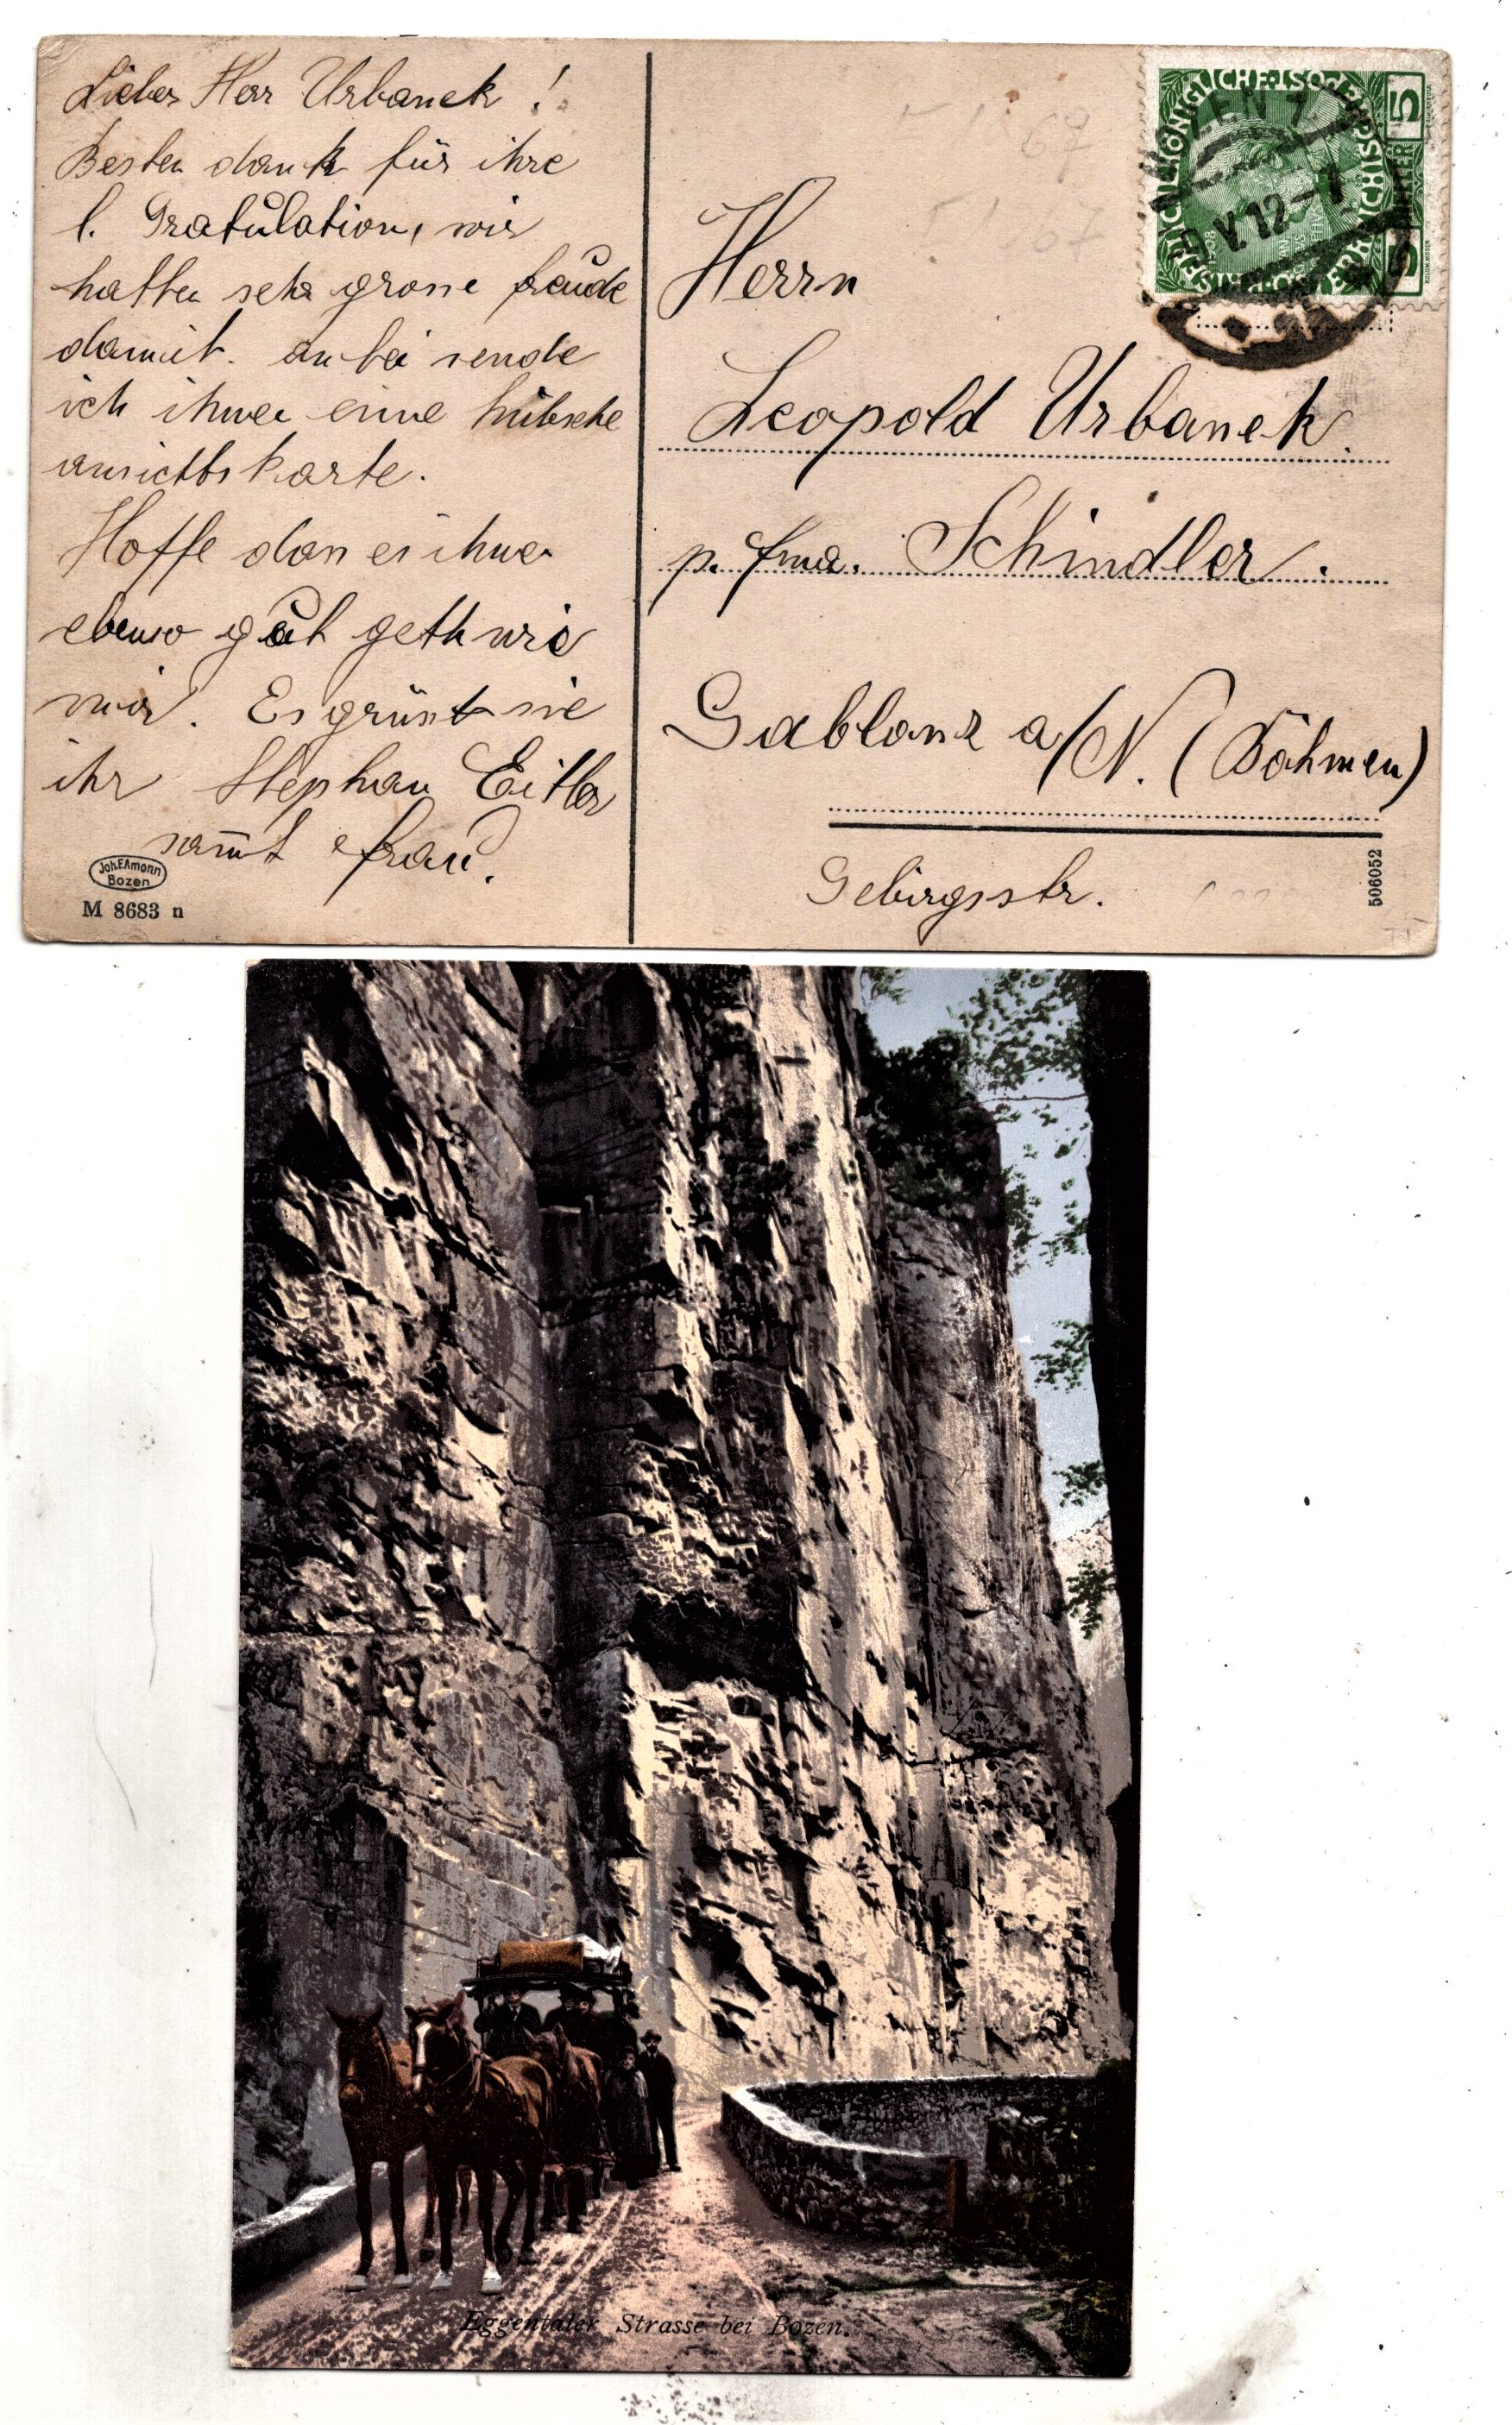 Lieber Herr Urbanek!
Besten dank für ihre
l. Gratulation, wir
hatten sehr grosse freude
damit. anbei sende
ich ihnen eine hübsche
ansichtskarte.
Hoffe dass es ihnen
ebenso gut geth wie
mir. Es grüsst sie
ihr Stephan Eitler
sam̄t frau.
Joh.F.Amonn
Bozen
M 8683 n
BOZEN 1
V.12-7
5 HELLER 5
Herrn
Leopold Urbanek.
p. fma. Schindler.
Gablonz a/N. (Böhmen)
Gebirgsstr.
506052
Eggentaler Strasse bei Bozen.